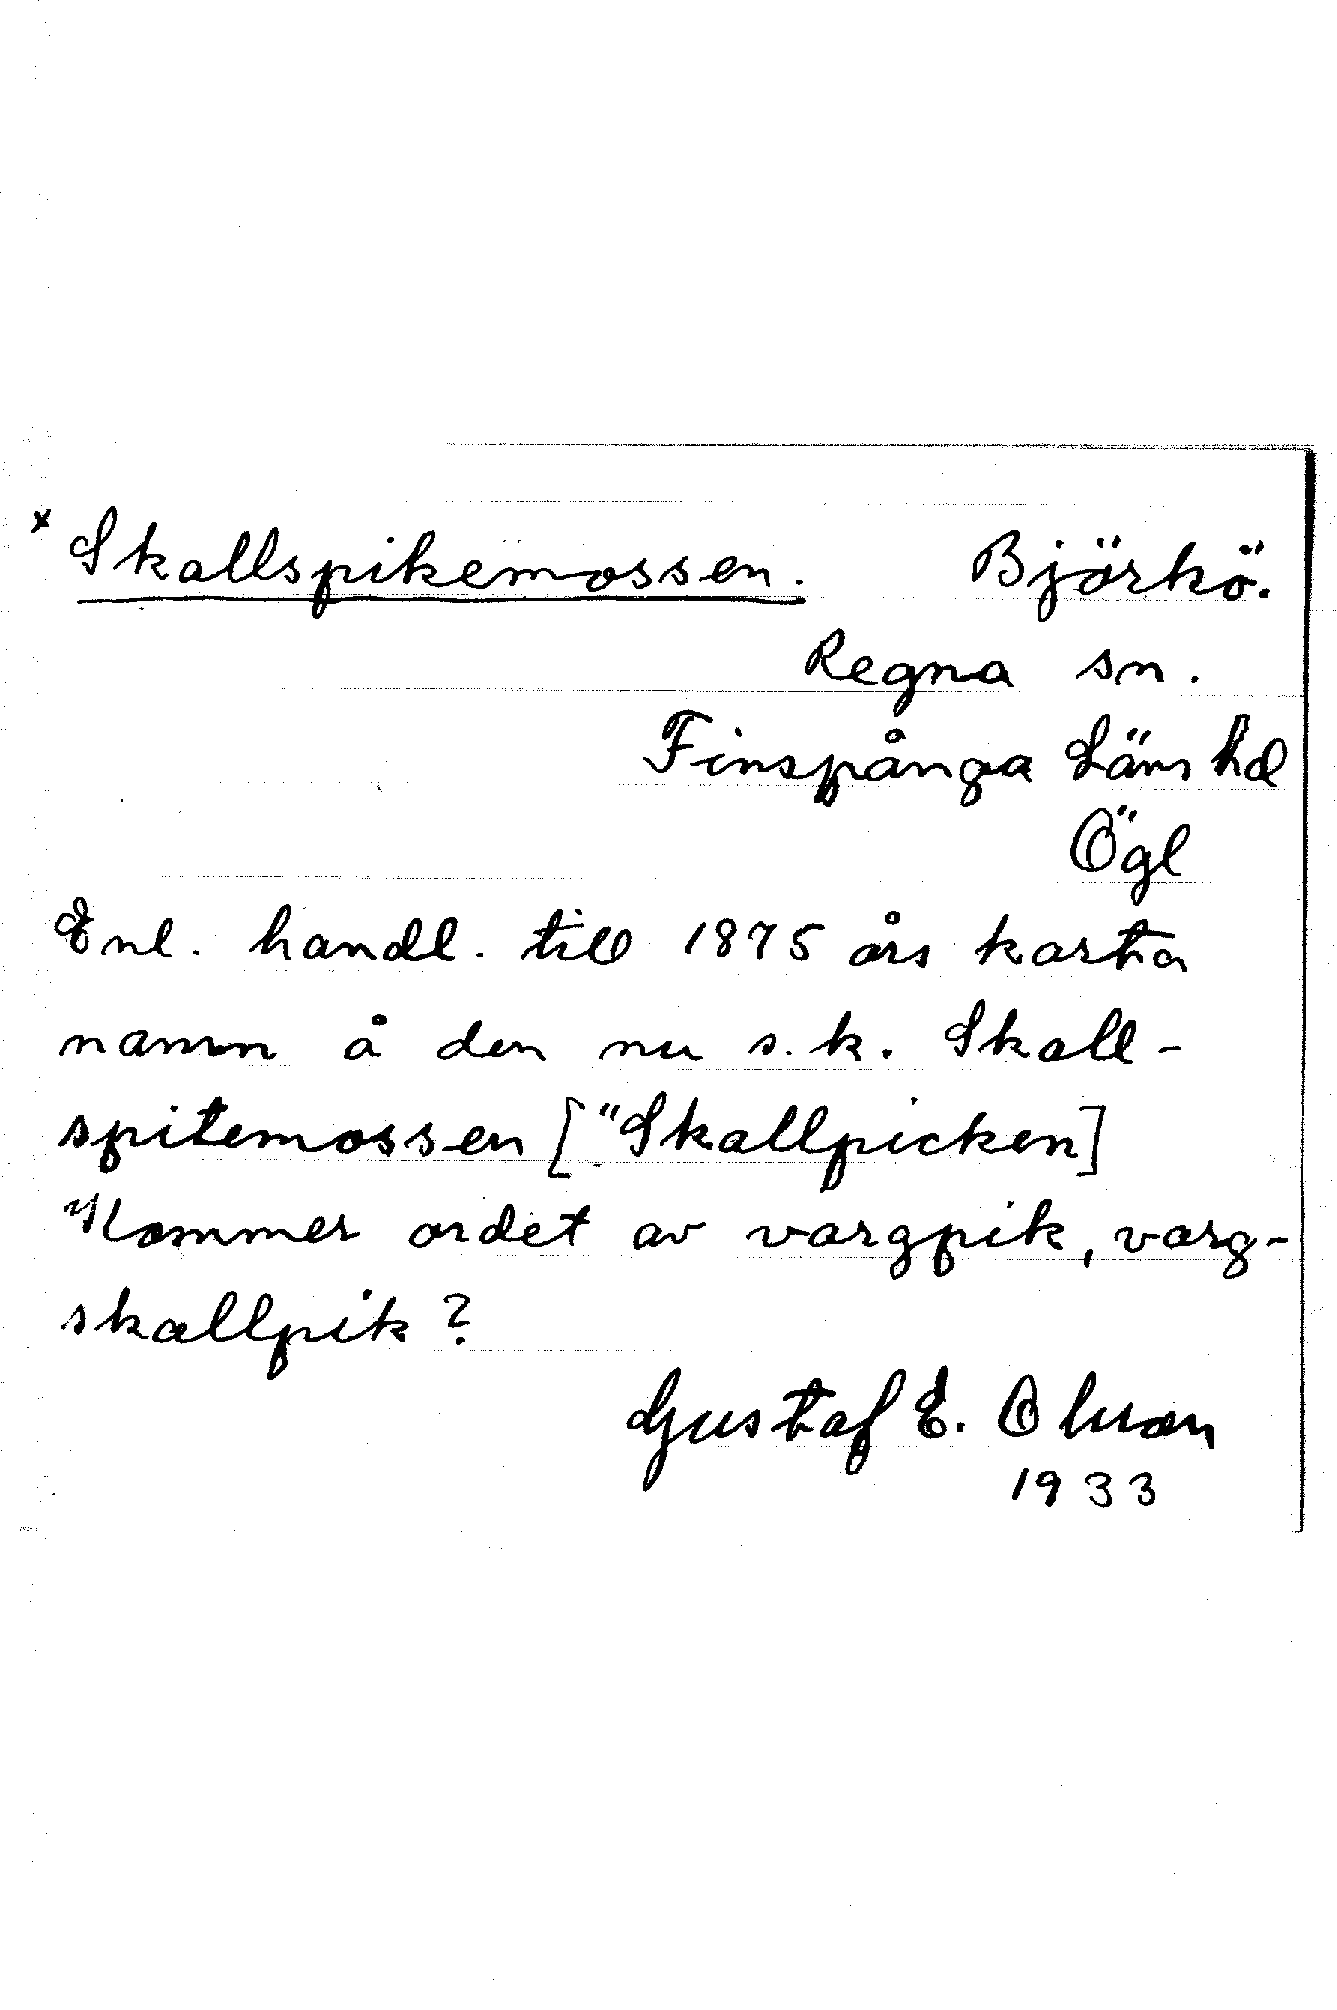 x Skallspikemossen. Björkö.
Regna sn.
Finspånga Läns hd
Ögl
Enl. handl. till 1875 års karta
namn å den nu s.k. Skall-
spitemossen ["Skallpicken]
Kommer ordet av vargpik, varg-
skallpik?
Gustaf E. Olsson
1933